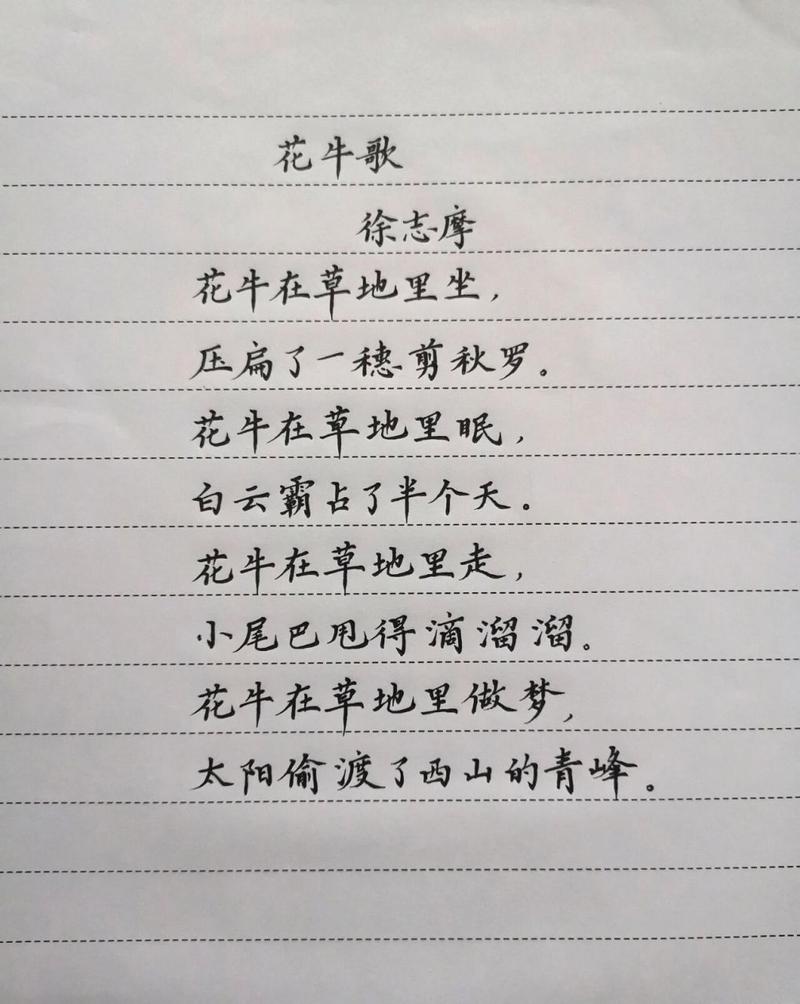 花牛歌
徐志摩
花牛在草地里坐，
压扁了一穗剪秋罗。
花牛在草地里眠，
白云霸占了半个天。
花牛在草地里走，
小尾巴甩得滴溜溜。
花牛在草地里做梦，
太阳偷渡了西山的青峰。